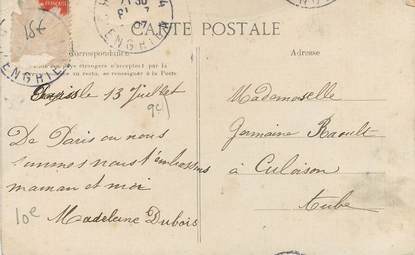 CARTE POSTALE
Correspondance
Adresse
Tous les pays étrangers n'acceptent pas la
au recto, se renseigner à la Poste
ENGHIEN
07
ENGHIEN
18€
Paris le 13 Juillet
9c
De Paris ou nous
sommes nous t'embrassons
maman et moi
10e
Madeleine Dubois
Mademoiselle
Germaine Raoult
à Culoison
Aube